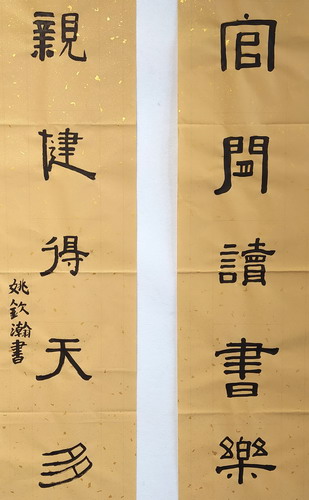 官閒讀書樂
親健得天多
姚欽瀚書